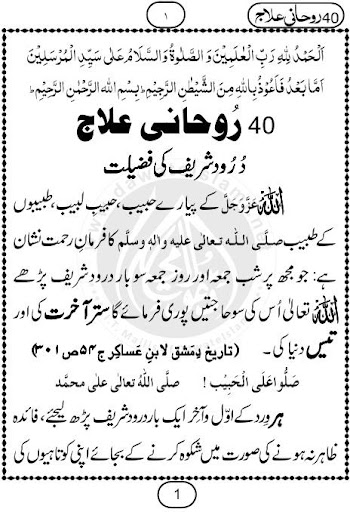 40 روحانی علاج
۱
اَلْحَمْدُ لِلّٰهِ رَبِّ الْعٰلَمِیْنَ وَ الصَّلٰوةُ وَالسَّلَامُ عَلٰی سَیِّدِ الْمُرْسَلِیْنَ
اَمَّا بَعْدُ فَاَعُوْذُ بِاللّٰهِ مِنَ الشَّیْطٰنِ الرَّجِیْمِ ؕ بِسْمِ اللّٰهِ الرَّحْمٰنِ الرَّحِیْمِ ؕ
40 رُوحانی علاج
دُرُود شریف کی فضیلت
اللّٰہ عَزَّوَجَلَّ کے پیارے حبیب، حبیبِ لبیب، طبیبوں
کے طبیب صلَّی اللہ تعالٰی علیہ واٰلہٖ وسلَّم کا فرمانِ رحمت نشان
ہے: جو مجھ پر شبِ جمعہ اور روزِ جمعہ سو بار درود شریف پڑھے
اللّٰہ تعالٰی اُس کی سو حاجتیں پوری فرمائے گا ستّر آخرت کی اور
تیس دنیا کی۔ (تاریخ دِمشق لابنِ عَساکِر ج۵۴ ص۳۰۱)
صَلُّوا عَلَی الْحَبِیْب ! صلَّی اللہُ تعالٰی علٰی محمَّد
ہر وِرد کے اوّل و آخر ایک بار درود شریف پڑھ لیجئے، فائدہ
ظاہر نہ ہونے کی صورت میں شکوہ کرنے کے بجائے اپنی کوتاہیوں کی
1